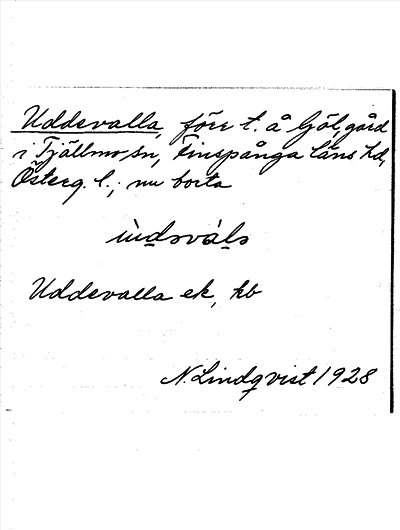 Uddevalla, förr t. å Göl, gård
i Tjällmo sn, Finspånga läns hd,
Österg. l.; nu borta
ùdsváls
Uddevalla ek, kb
N. Lindqvist 1928